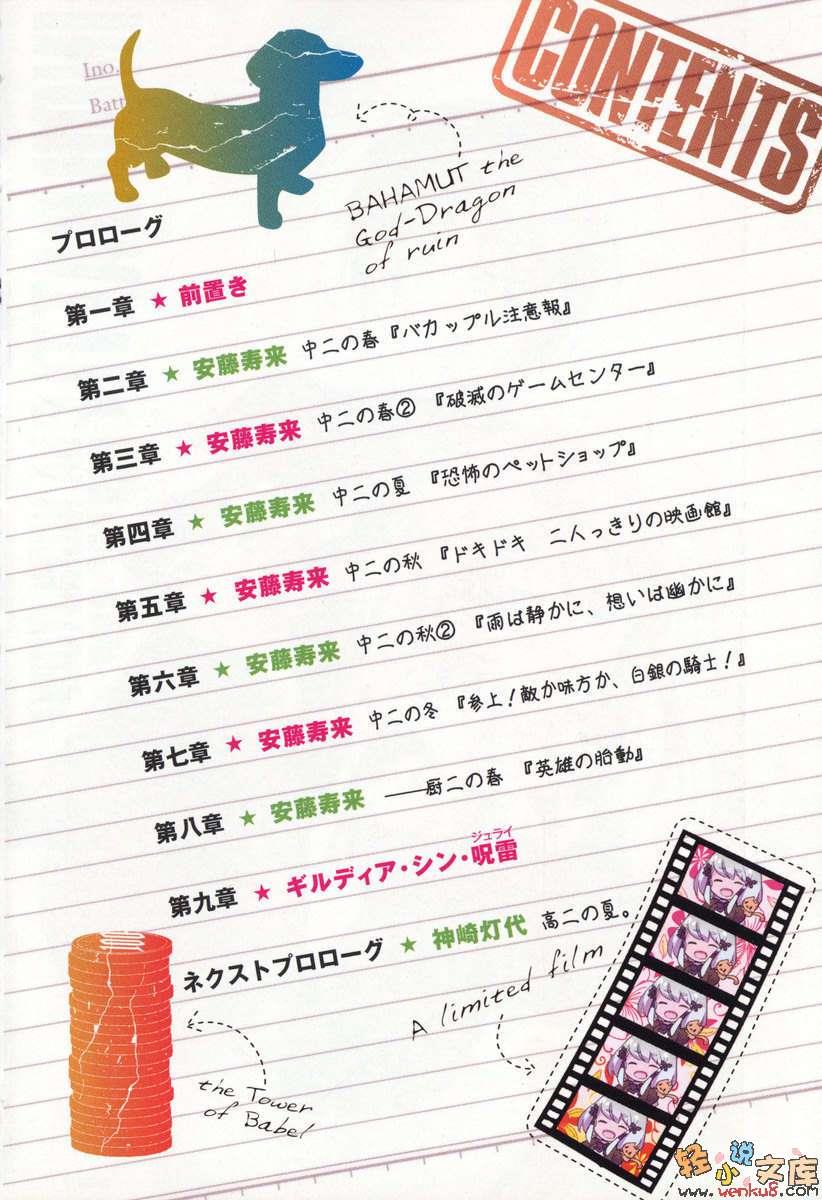 CONTENTS
Ino.
Batt
BAHAMUT the
God-Dragon
of ruin
プロローグ
第一章 ★ 前置き
第二章 ★ 安藤寿来 中二の春『バカップル注意報』
第三章 ★ 安藤寿来 中二の春② 『破滅のゲームセンター』
第四章 ★ 安藤寿来 中二の夏 『恐怖のペットショップ』
第五章 ★ 安藤寿来 中二の秋 『ドキドキ 二人っきりの映画館』
第六章 ★ 安藤寿来 中二の秋② 『雨は静かに、想いは幽かに』
第七章 ★ 安藤寿来 中二の冬 『参上!敵か味方か、白銀の騎士!』
第八章 ★ 安藤寿来 ――厨二の春 『英雄の胎動』
ジュライ
第九章 ★ ギルディア・シン・呪雷
ネクストプロローグ ★ 神崎灯代 高二の夏。
A limited film
the Tower
of Babel
轻小说文库
www.wenku8.com